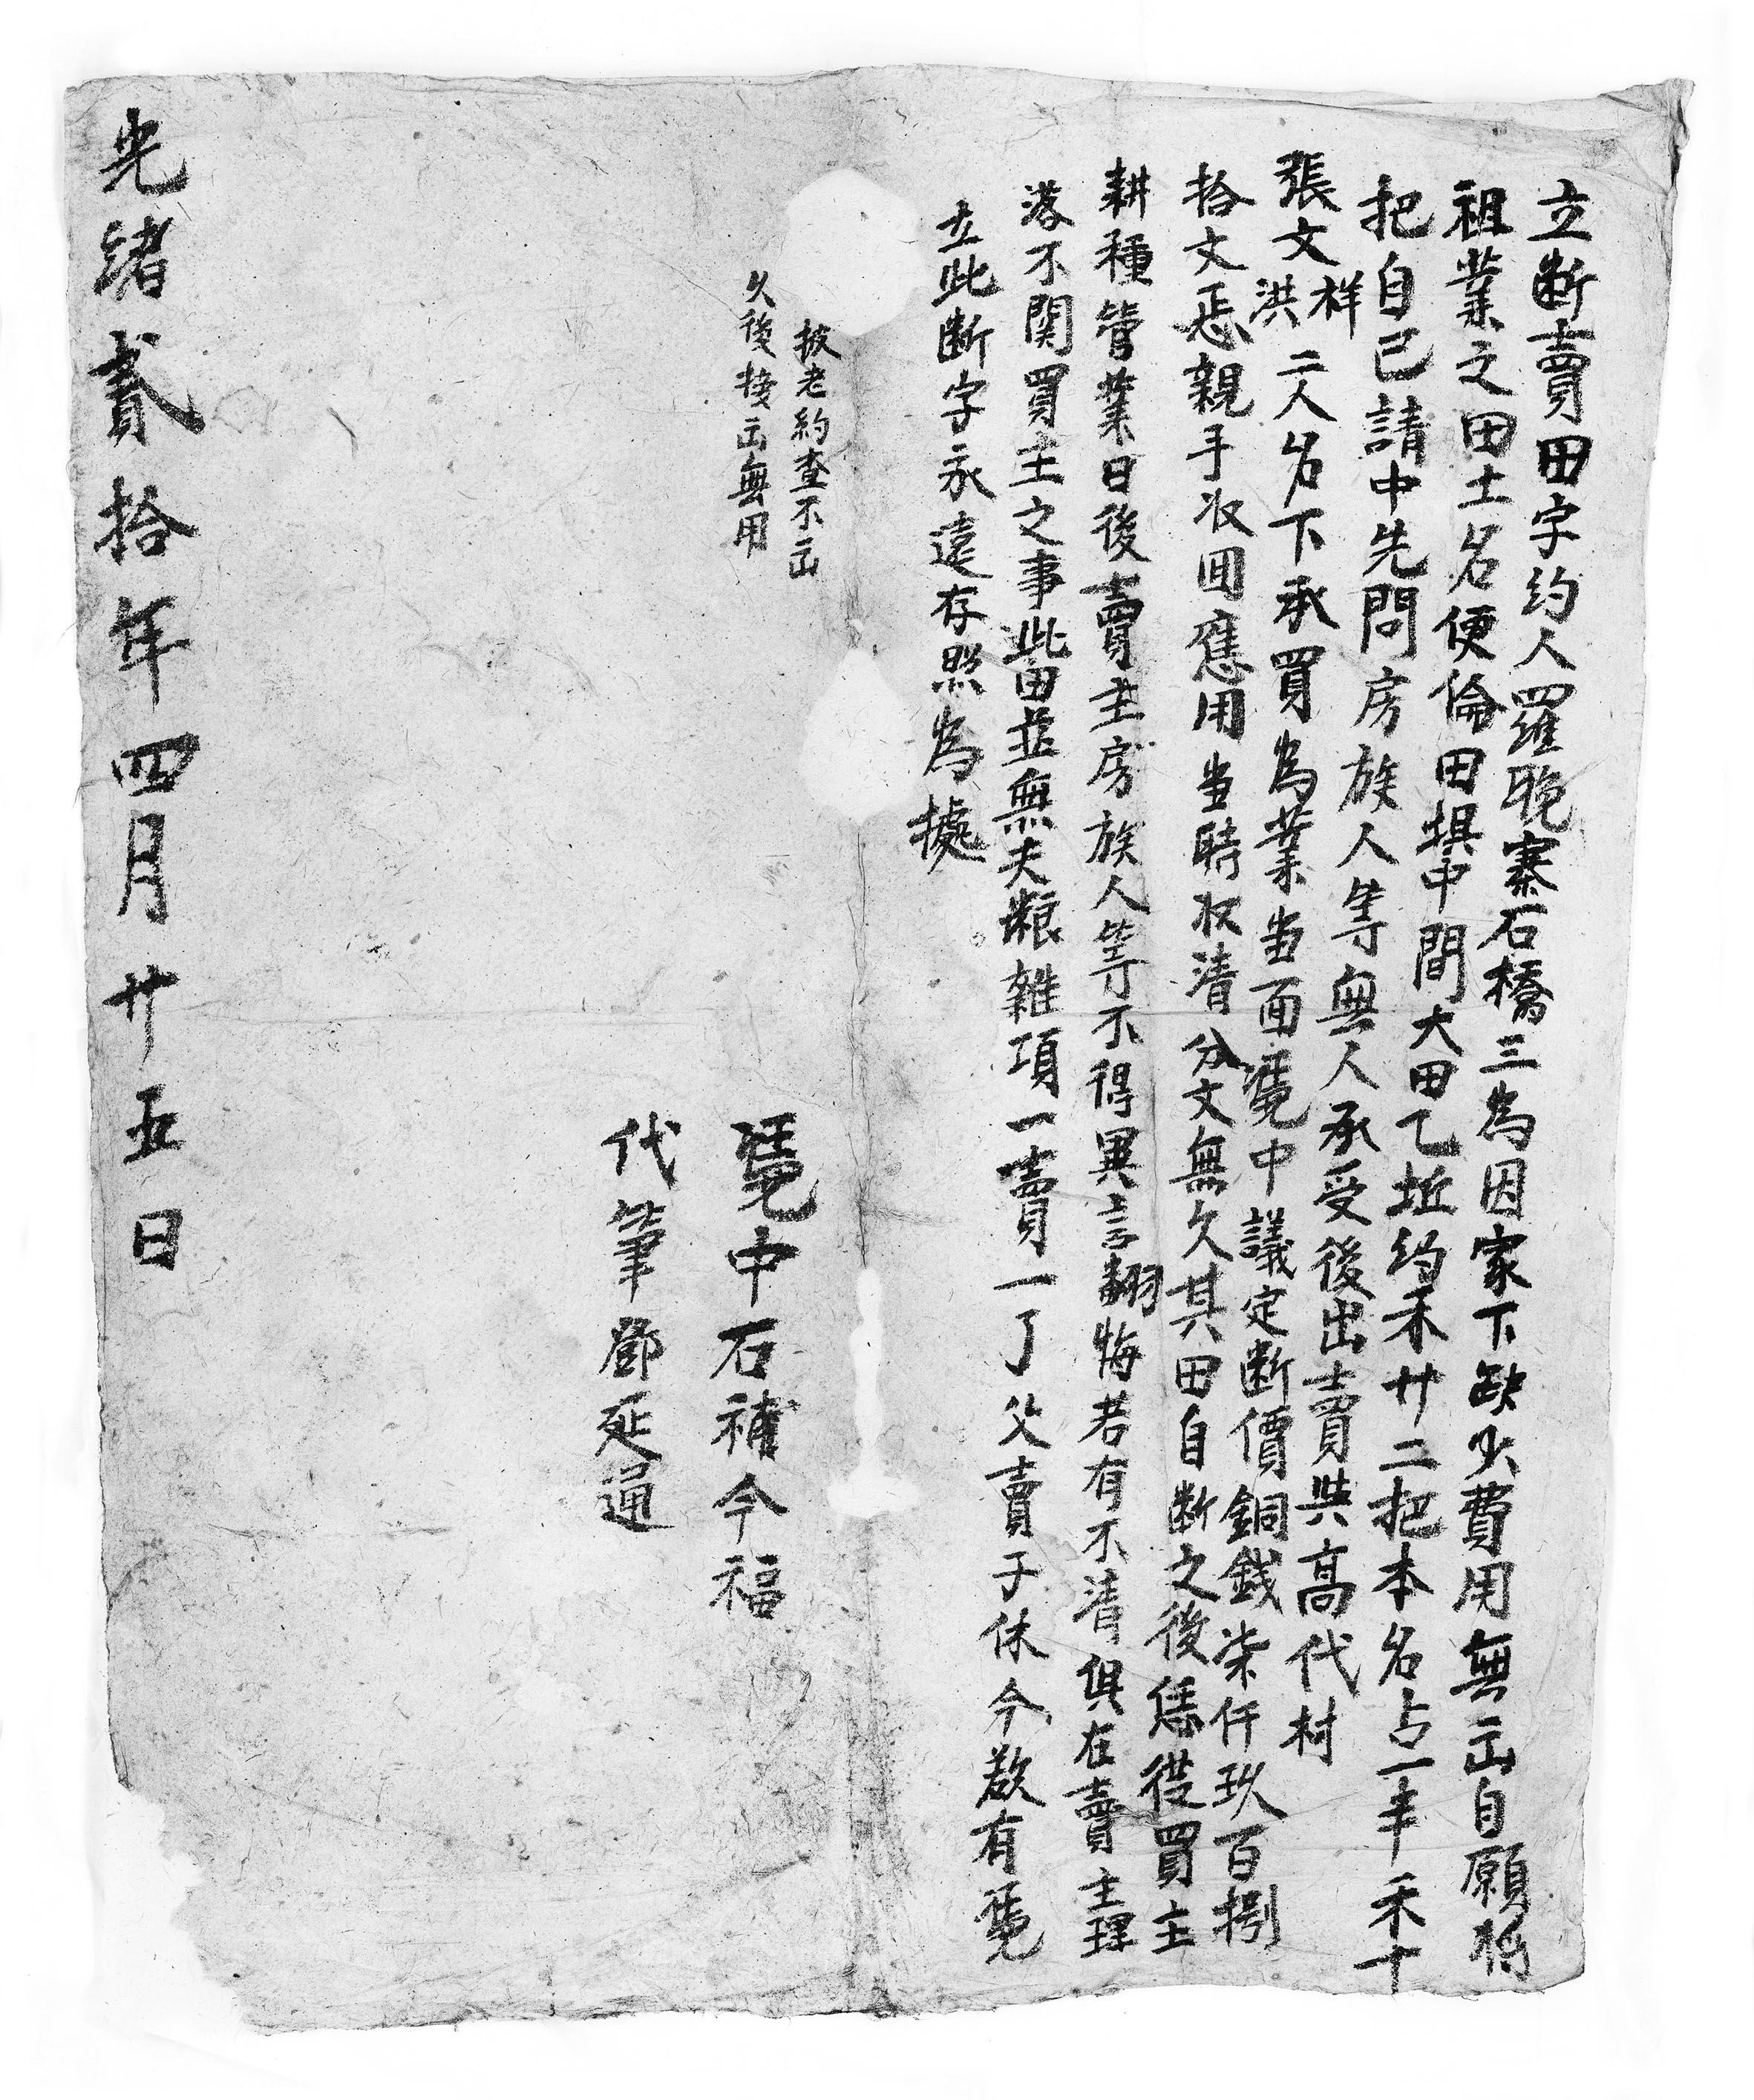 立断賣田字約人羅晚寨石橋三為因家下缺少費用無出自願将
祖業之田土名便倫田棋中間大田乙坵約禾廿二把本名占一半禾十
把自己請中先問房族人等無人承受後出賣與高代村
張文祥洪二人名下承買為業当面凴中議定断價銅錢柒仟玖百捌
拾文恁親手收囬應用当時收清分文無欠其田自断之後恁從買主
耕種管業日後賣主房族人等不得異言翻悔若有不清俱在賣主理
落不関買主之事此田並無夫粮雜項一賣一了父賣子休今欲有凴
立此断字永遠存照為據
披老約查不出
久後接出無用
凴中石補今福
代筆鄧延通
光緒貳拾年四月廿五日